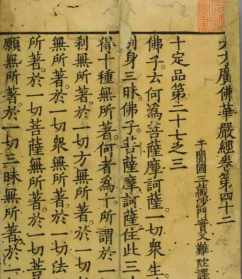 大方廣佛華嚴經卷第四十二
于闐國三藏沙門實叉難陀譯
十定品第二十七之三
佛子云何為菩薩摩訶薩一切衆生
別身三昧佛子菩薩摩訶薩住此三
得十種無所著何者為十所謂於一
刹無所著於一切方無所著於一切
無所著於一切衆無所著於一切法
所著於一切菩薩無所著於一切菩
願無所著於一切三昧無所著於